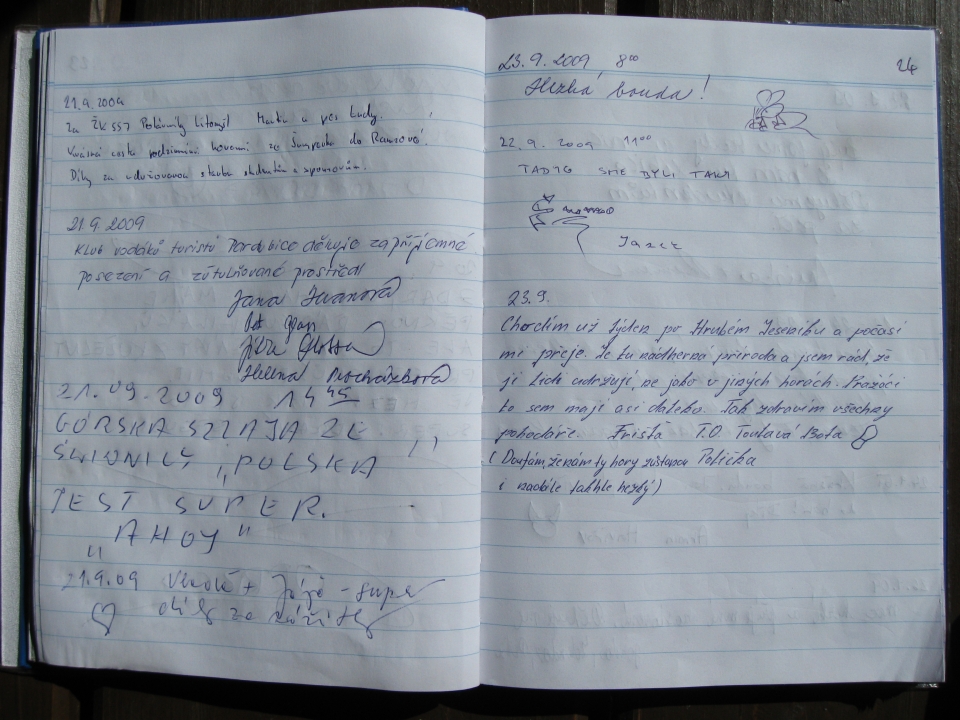 21.9.2009
Za ŽK 557 Litomyšl Martin a pes Ludy.
Krásná cesta podzimními horami ze do Ramzové.
Díky za udržovanou studentům a sponzorům.
21.9.2009
KLUB vodáků turistů Pardubice děkuje za příjemné
posezení a zútulňované prostředí
Jana Ivanová
Petr
Jitka
Helena Procházková
21.09.2009 14 45
GÓRSKA SZTAJA ZE
"POLSKA"
JEST SUPER.
"AHOY"
21.9.09 + Jája - super
díky za zážitky
24
23.9.2009 8 00
Hezká bouda!
22.9.2009 11 00
TADYG SME BYLI TAKY
23.9.
Chodím už týden po Hrubém Jeseníku a počasí
mi přeje. Je tu nádherná příroda a jsem rád, že
ji lidi udržují, ne jako v jiných horách. Pražáci
to sem mají asi daleko. Tak zdravím všechny
pohodáře. Frišta T.O. Toulavá Bota
(Doufám, že nám ty hory zůstanou Polička
i nadále takhle hezký)